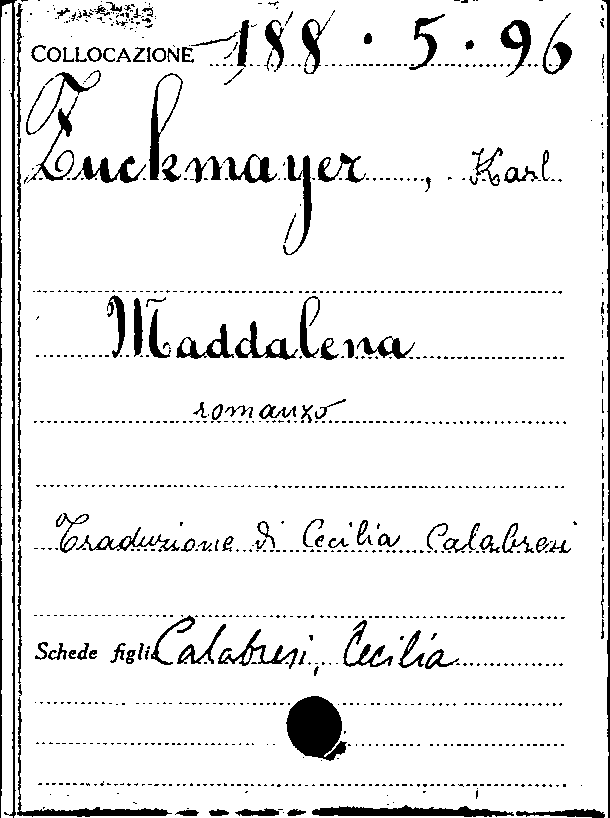 COLLOCAZIONE 188 · 5 · 96
Zuckmayer, Karl
Maddalena
romanzo
Traduzione di Cecilia Calabresi
Schede figlie Calabresi, Cecilia